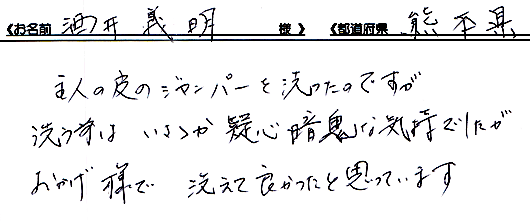 《お名前 酒井義明 様》《都道府県 熊本県
主人の皮のジャンパーを洗ったのですが
洗う前は いささか 疑心暗鬼な気持でしたが
おかげ様で 洗えて良かったと思っています